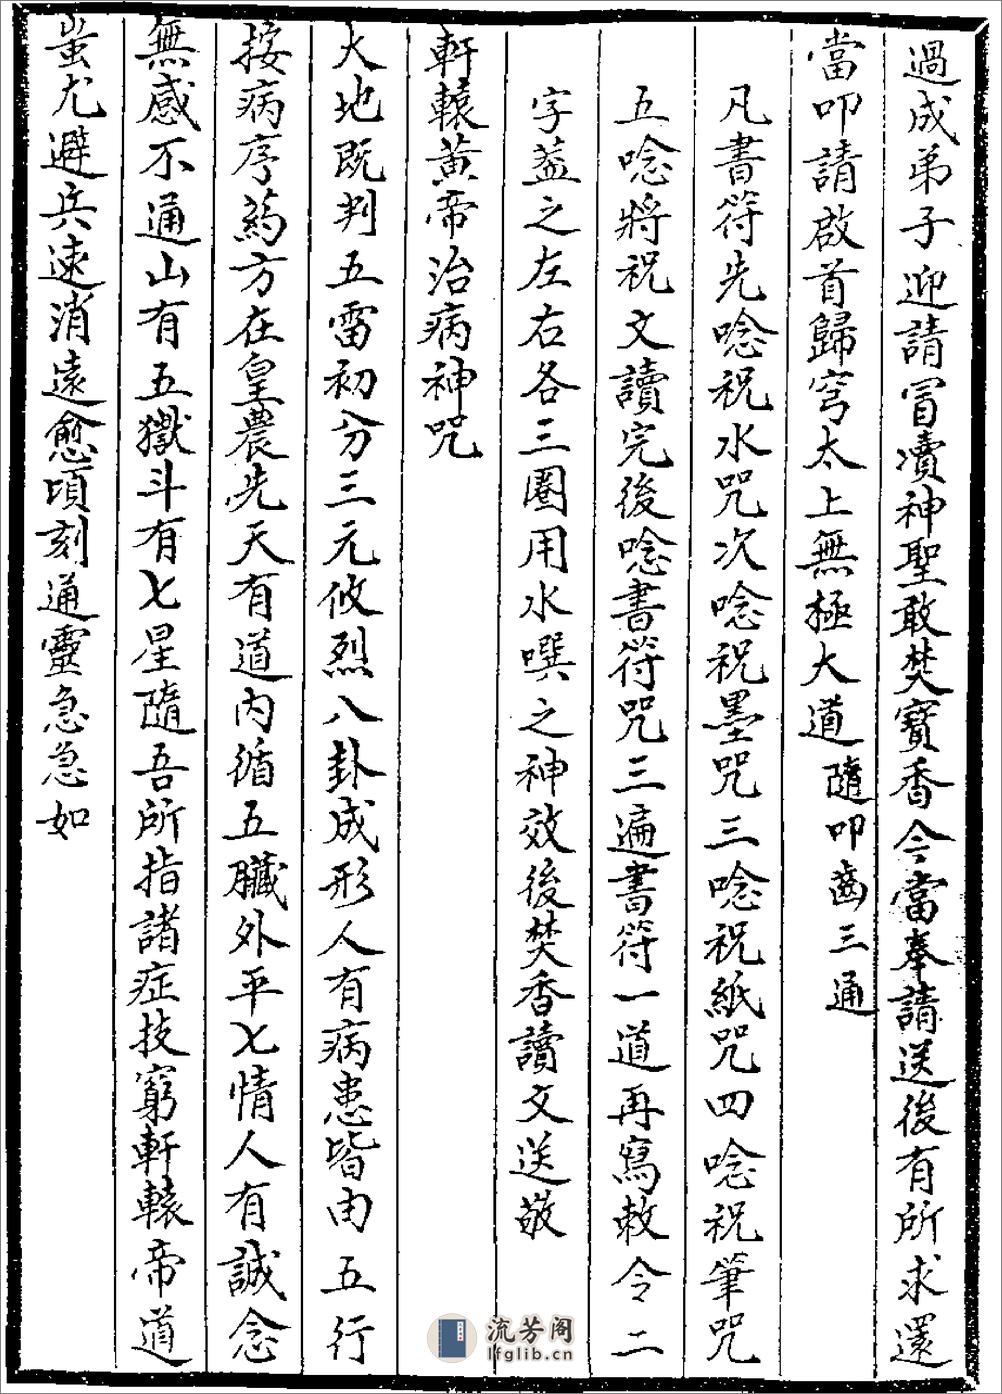 過成弟子迎請冒瀆神聖敢焚寶香今當奉請送後有所求還
當叩請啟首歸穹太上無極大道隨叩齒三通
凡書符先唸祝水咒次唸祝墨咒三唸祝紙咒四唸祝筆咒
五唸將祝文讀完後唸書符咒三遍書符一道再寫敕令二
字蓋之左右各三圈用水噀之神效後焚香讀文送敬
軒轅黃帝治病神咒
大地既判五雷初分三元攸烈八卦成形人有病患皆由五行
按病序药方在皇農先天有道內循五臟外平七情人有誠念
無感不通山有五獄斗有七星隨吾所指諸症技窮軒轅帝道
蚩尤避兵速消遠愈頃刻通靈急急如
流芳阁
lfglib.cn